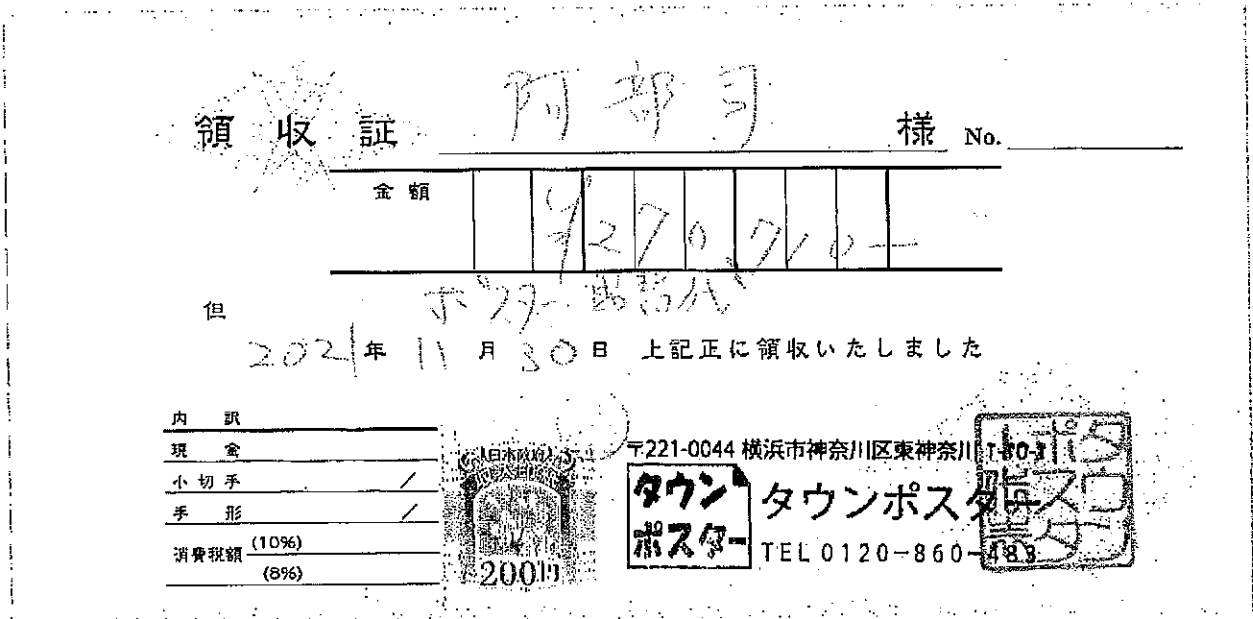 領収証 阿部司 様 No.
金額 ¥270,710-
但 ポスター 代
2021年 11月 30日 上記正に領収いたしました
内訳
現金
小切手 /
手形 /
消費税額 (10%)
(8%)
日本政府
200円
〒221-0044 横浜市神奈川区東神奈川1-30-
タウン
ポスター
タウンポスター
TEL 0120-860-483